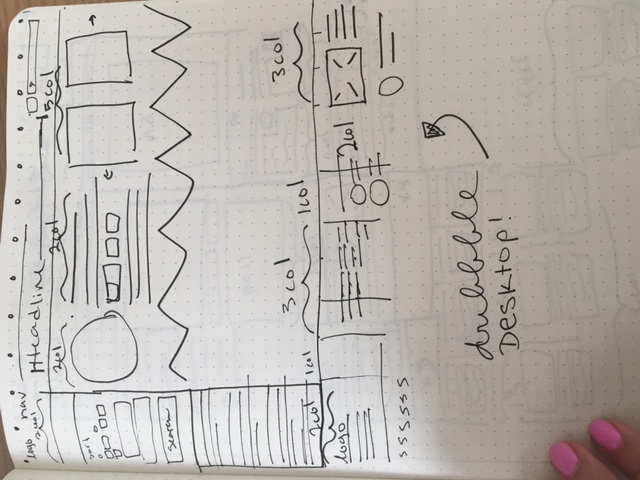 Logo nav
2col
Headline
5col
2col 2col
sort
Search
3col 3col
2col 1col 1col
logo 2col
SSSSSS
dribbble
Desktop!